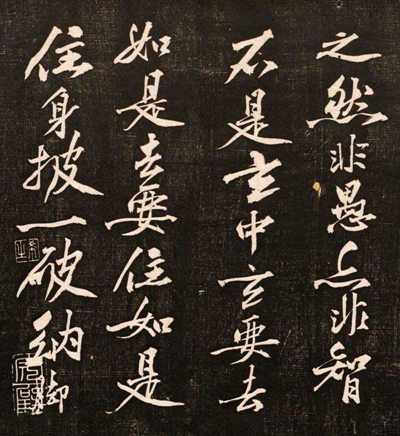 之然非愚亦非智
不是玄中玄要去
如是去要住如是
住身披一破納脚